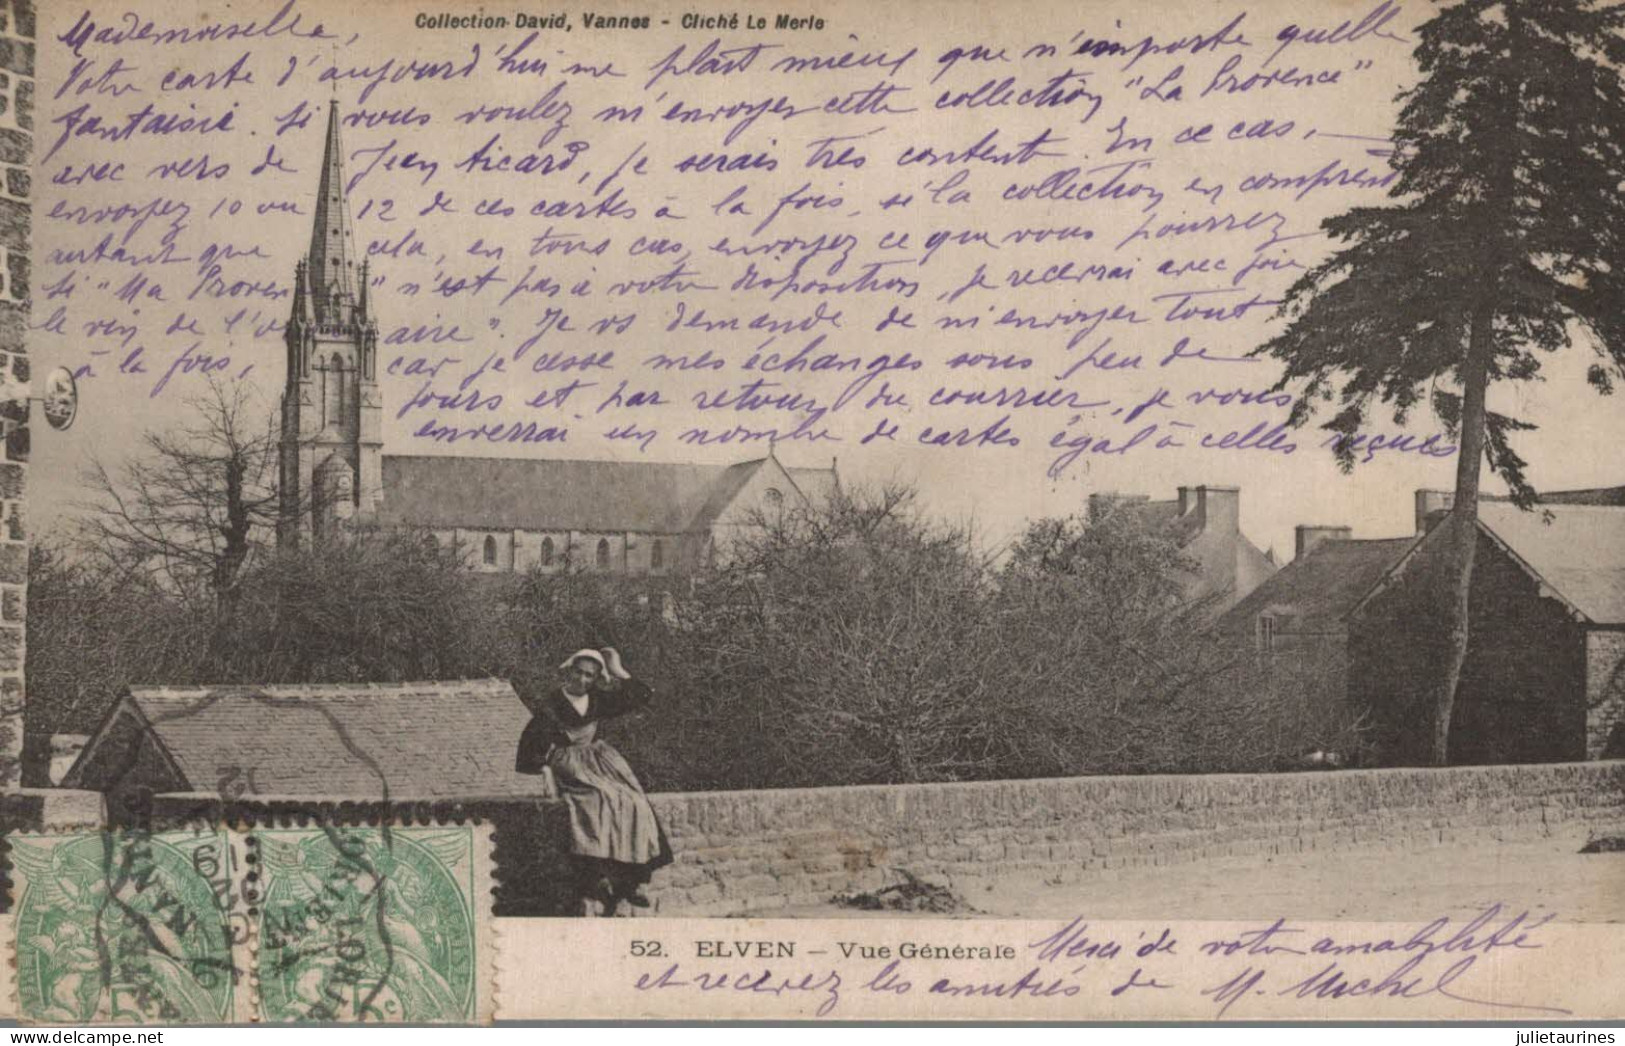 Collection David, Vannes - Cliché Le Merle
Mademoiselle,
Votre carte d'aujourd'hui me plaît mieux que n'importe quelle
fantaisie. Si vous voulez m'envoyer cette collection "La Provence"
avec vers de Jean Aicard, je serais très content. En ce cas,
envoyez 10 ou 12 de ces cartes à la fois, si la collection en comprend
autant que cela, en tous cas, envoyez ce que vous pourrez
Si "La Proven " n'est pas à votre disposition, je recevrai avec joie
le vin de l' aire". Je vs demande de m'envoyer tout
à la fois, car je cesse mes échanges sous peu de
jours et par retour du courrier, je vous
enverrai un nombre de cartes égal à celles reçues
52. ELVEN - Vue Générale Merci de votre amabilité
et recevez les amitiés de M. Michel
NANTES
LORIENT
julietaurines